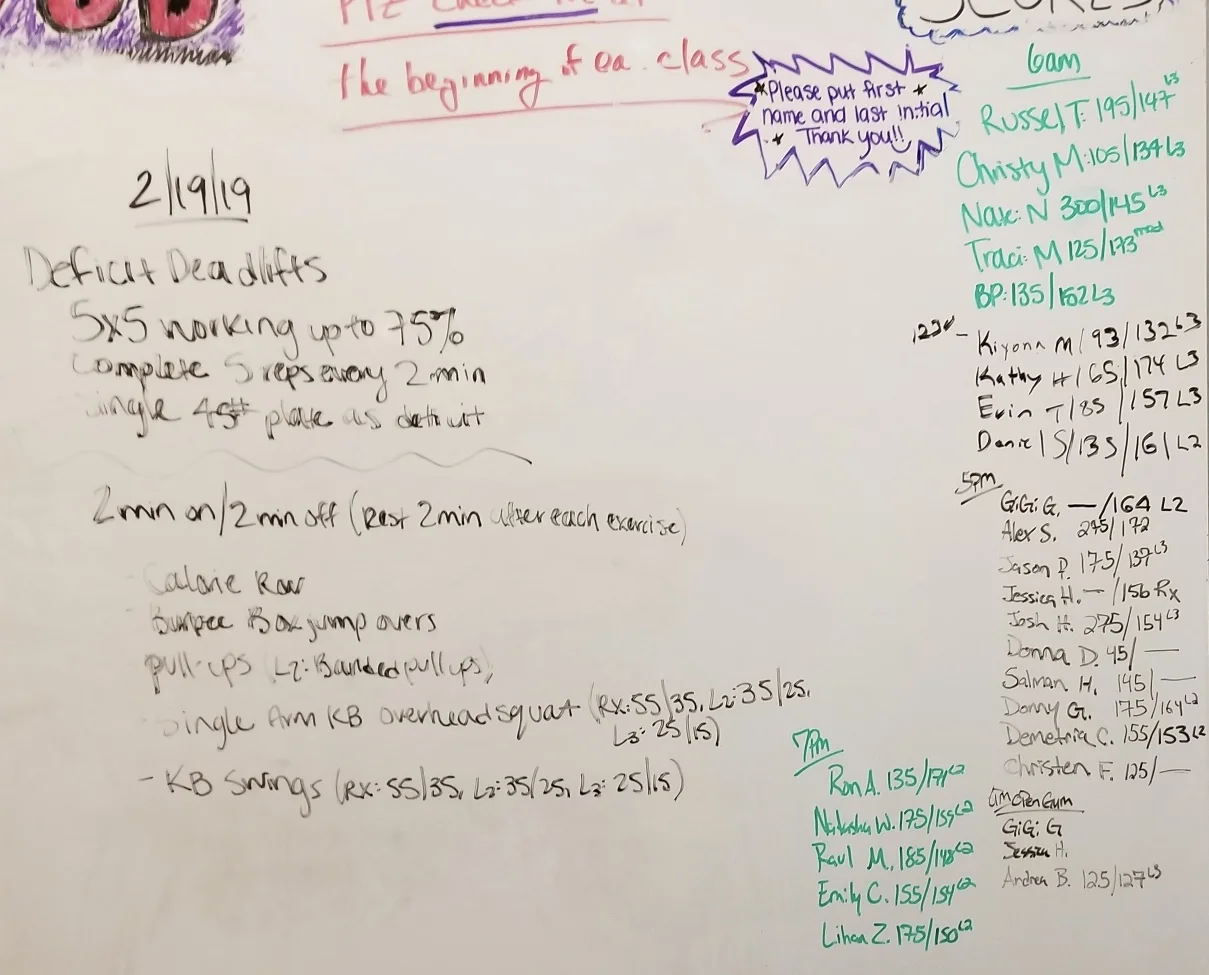 the beginning of ea. class
SCORES
*Please put first *
name and last initial
* Thank you!!
2/19/19
Deficit Deadlifts
5x5 working up to 75%
Complete 5 reps every 2 min
Single 45# plate as deficit
2 min on/2 min off (Rest 2 min after each exercise)
Calorie Row
Burpee Box jump overs
pull-ups (L2: Banded pull ups)
Single Arm KB overhead squat (RX: 55/35, L2: 35/25,
L3: 25/15)
- KB Swings (RX: 55/35, L2: 35/25, L3: 25/15)
6am
Russel T: 195/147 L3
Christy M: 105/134 L3
N 300/145 L3
Traci M 125/173 mod
BP: 135/152 L3
Kiyona M/93/132 L3
Kathy H/65/174 L3
Evin T/85/157 L3
Daniel S/135/161 L2
5pm
GiGi G. —/164 L2
Alex S. 275/172
Jason P. 175/137 L3
Jessica H. —/156 Rx
Josh H. 275/154 L3
Donna D. 45/—
Salman H. 145/—
Donny G. 175/164 L2
Demetria C. 155/153 L2
Christen F. 125/—
Open Gum
GiGi G
Jessica H.
Andrea B. 125/127 L3
7pm
Ron A. 135/171 L2
Natasha W. 175/159 L2
Raul M. 185/148 L2
Emily C. 155/154 L2
Lihan Z. 175/150 L2